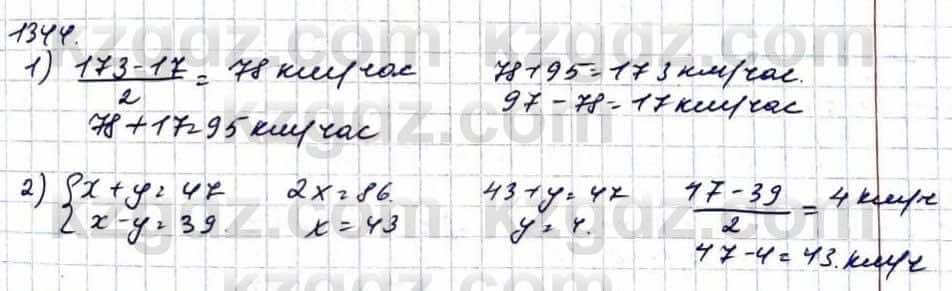 1344.
1) 173-17/2 = 78 км/час 78+95=173 км/час.
97-78=17 км/час
78+17=95 км/час
2) {x+y=47 2x=86. 43+y=47 47-39/2 = 4 км/ч
x-y=39. x=43 y=4.
47-4=43.км/ч
kzgdz.com